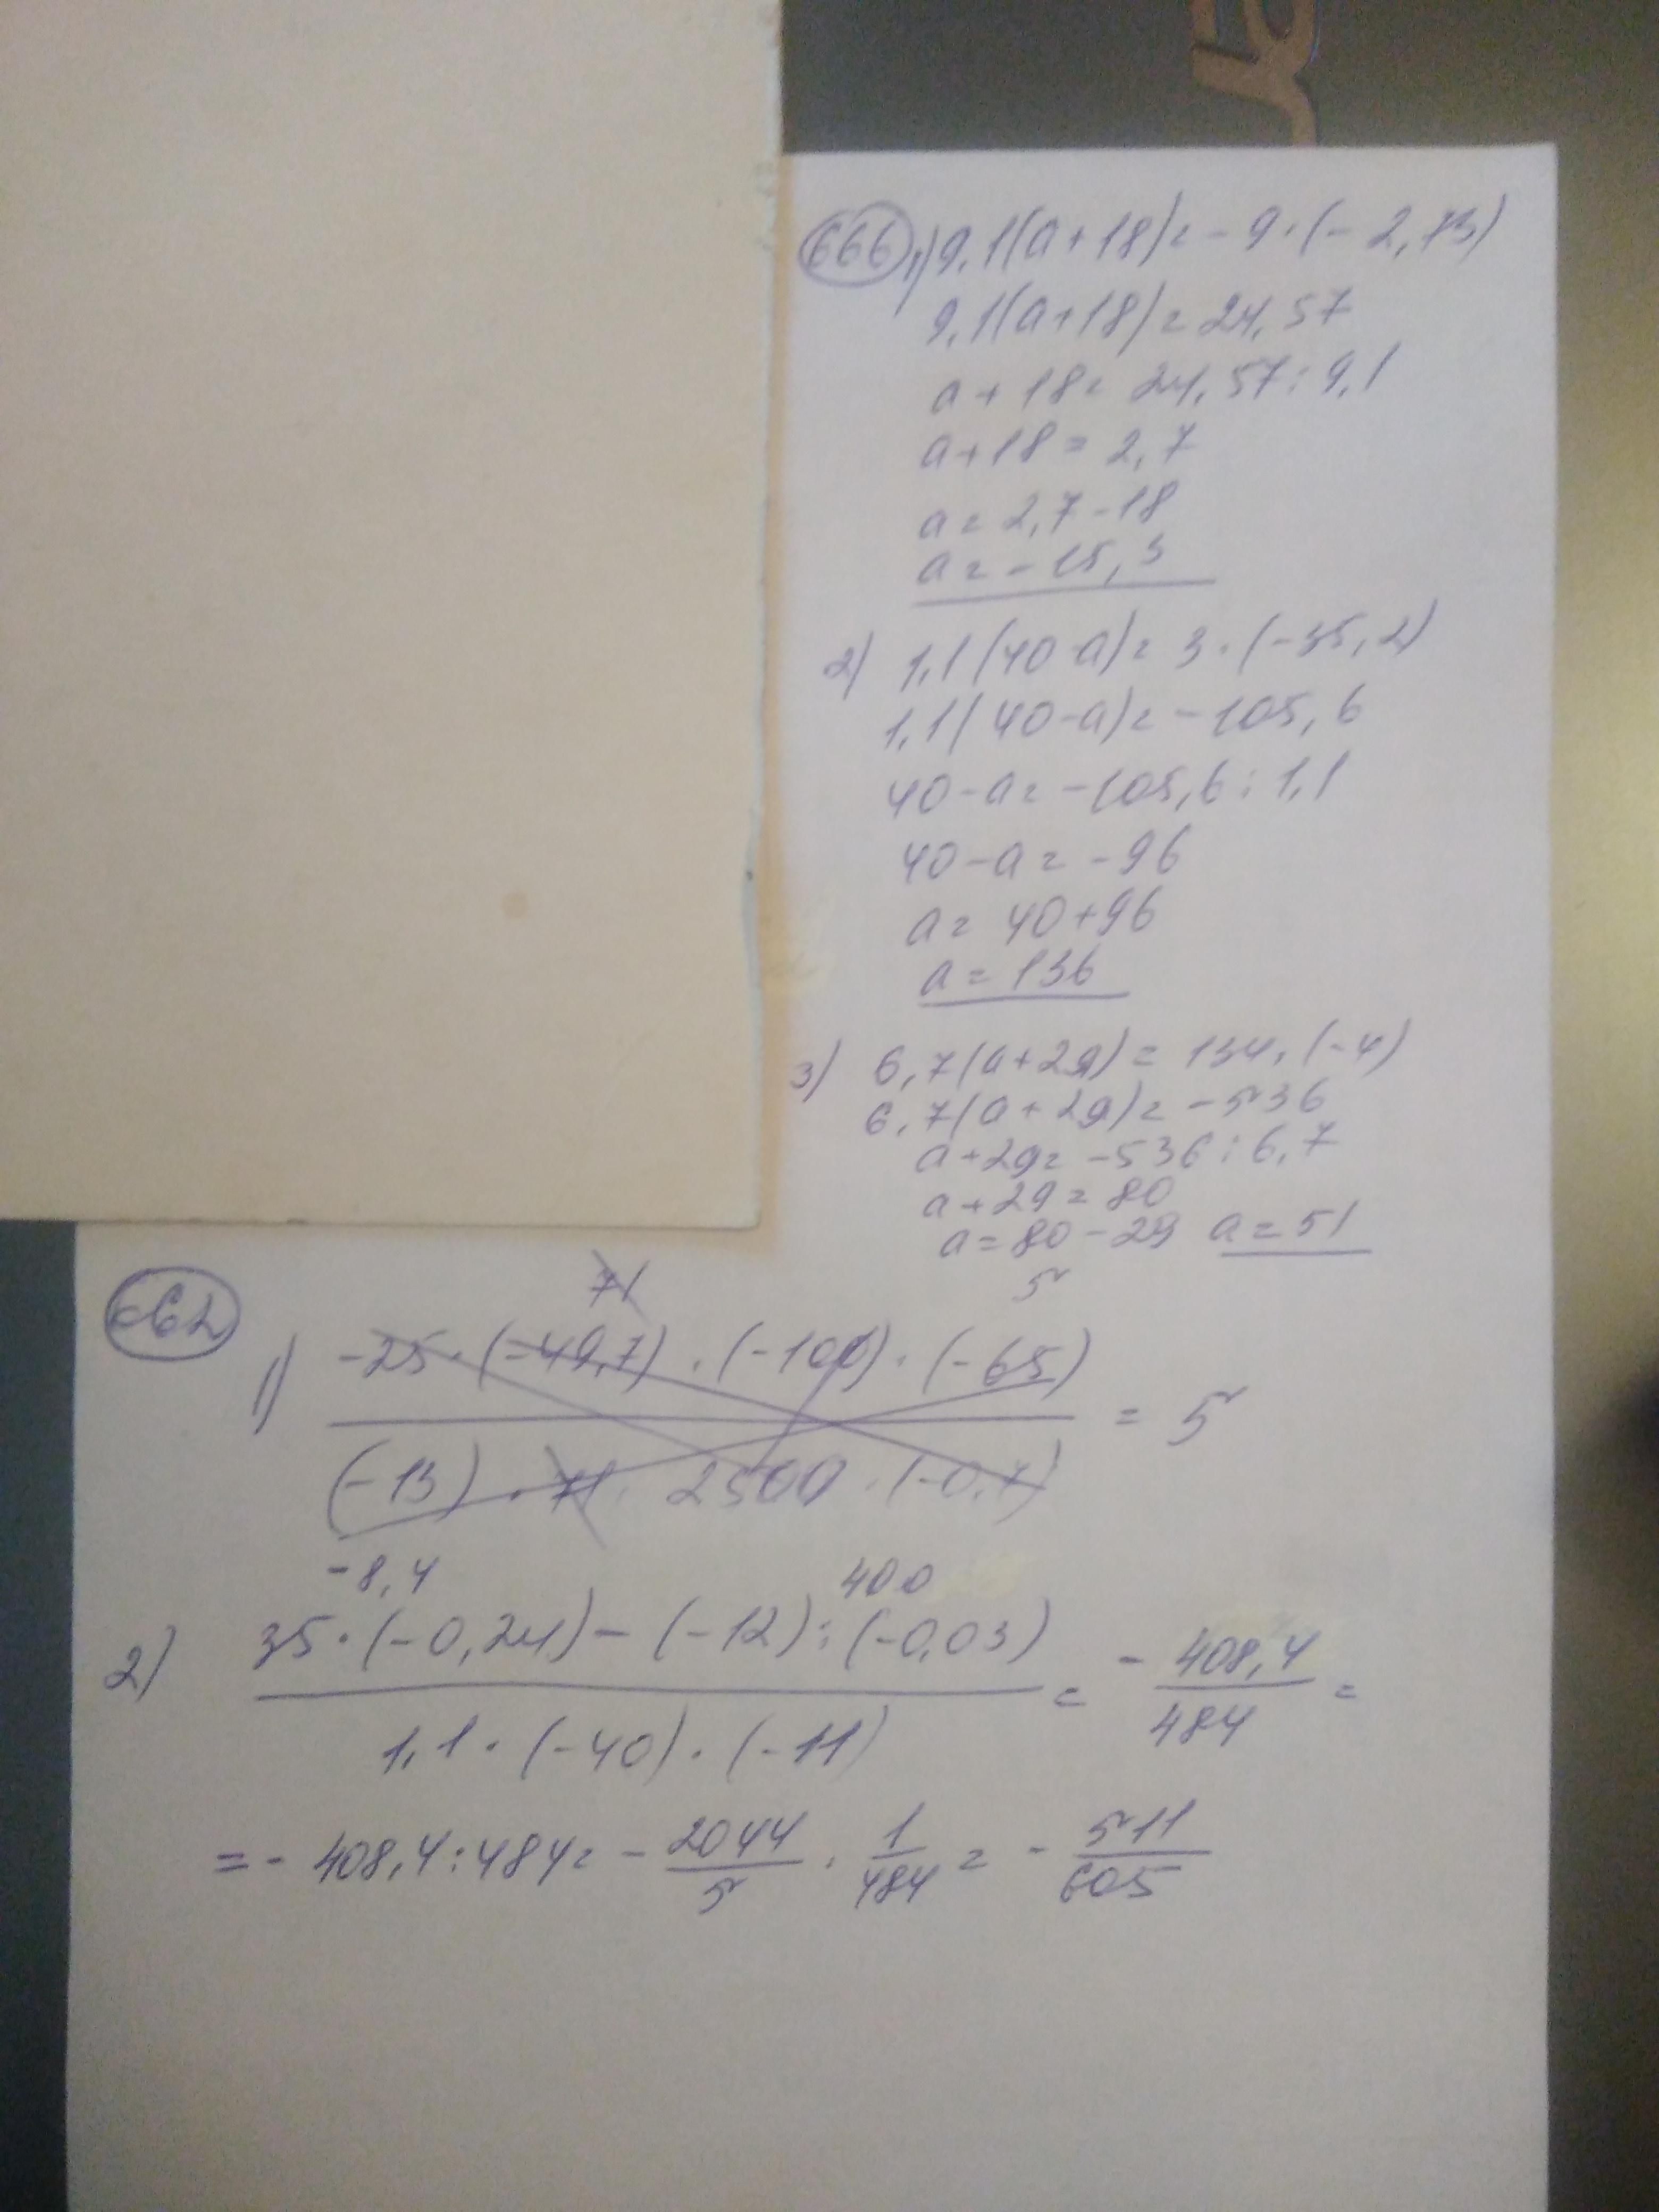 666 1) 9,1(a+18) = -9·(-2,73)
9,1(a+18) = 24,57
a+18 = 24,57:9,1
a+18 = 2,7
a = 2,7-18
a = -15,3
2) 1,1(40-a) = 3·(-35,2)
1,1(40-a) = -105,6
40-a = -105,6:1,1
40-a = -96
a = 40+96
a = 136
3) 6,7(a+29) = 134·(-4)
6,7(a+29) = -536
a+29 = -536:6,7
a+29 = 80
a = 80-29 a = 51
71 5
1) -25·(-49,7)·(-100)·(-65)
= 5
(-13)·71·2500·(-0,7)
-8,4 400
2) 35·(-0,24)-(-12):(-0,03)
= - 408,4/484 =
1,1·(-40)·(-11)
= -408,4:484 = - 2044/5 · 1/484 = - 511/605